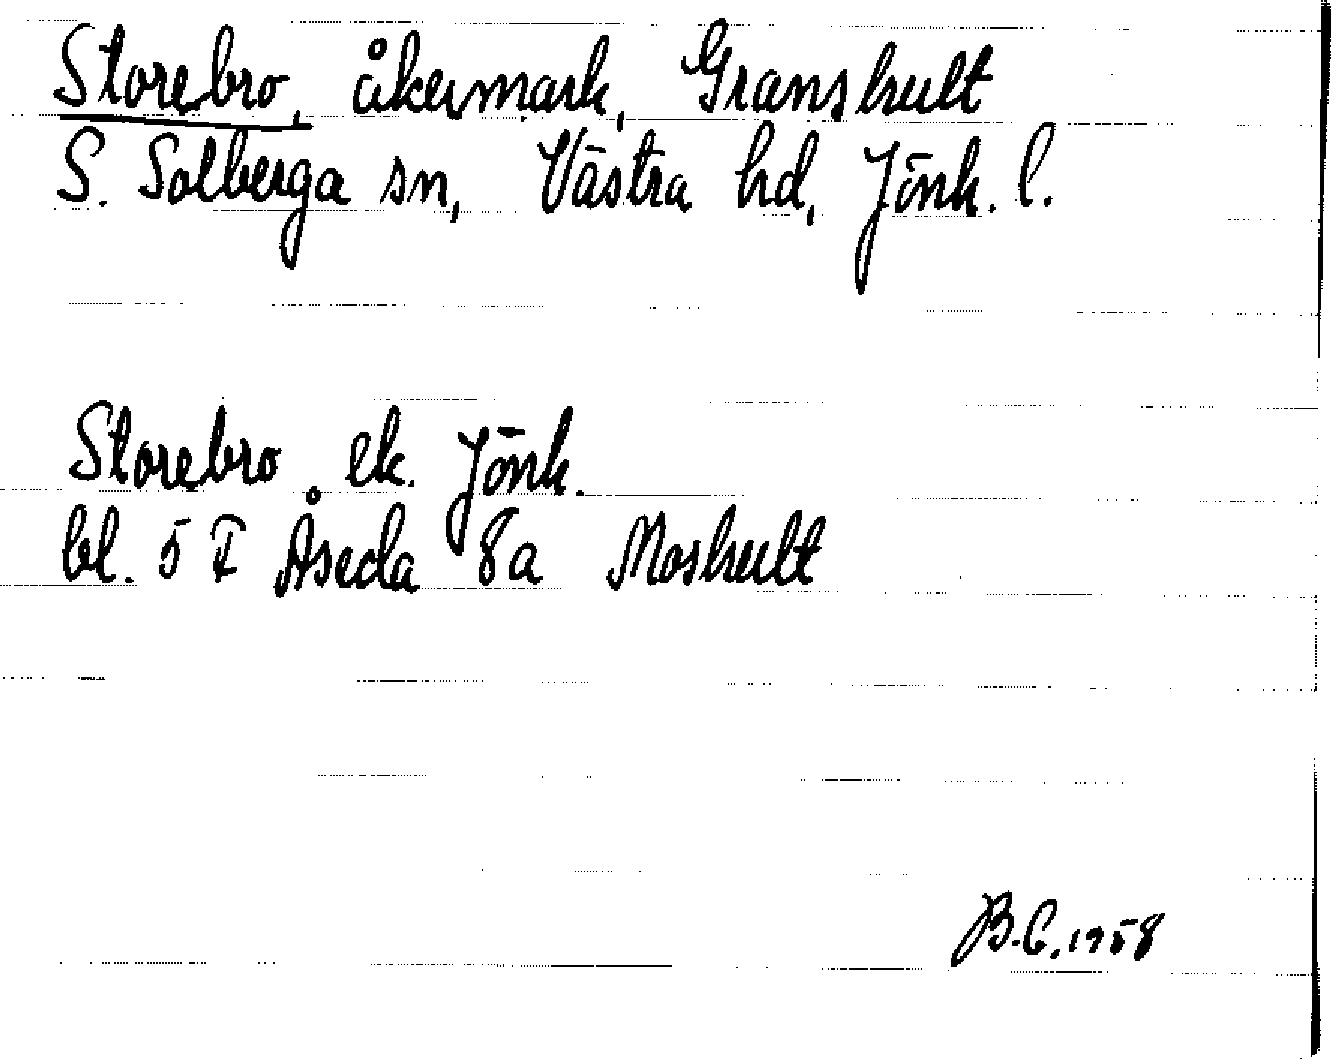 Storebro, åkermark, Granshult
S. Solberga sn, Västra hd, Jönk. l.
Storebro ek. Jönk.
bl. 5 I Åseda 8a Moshult
B.C. 1958